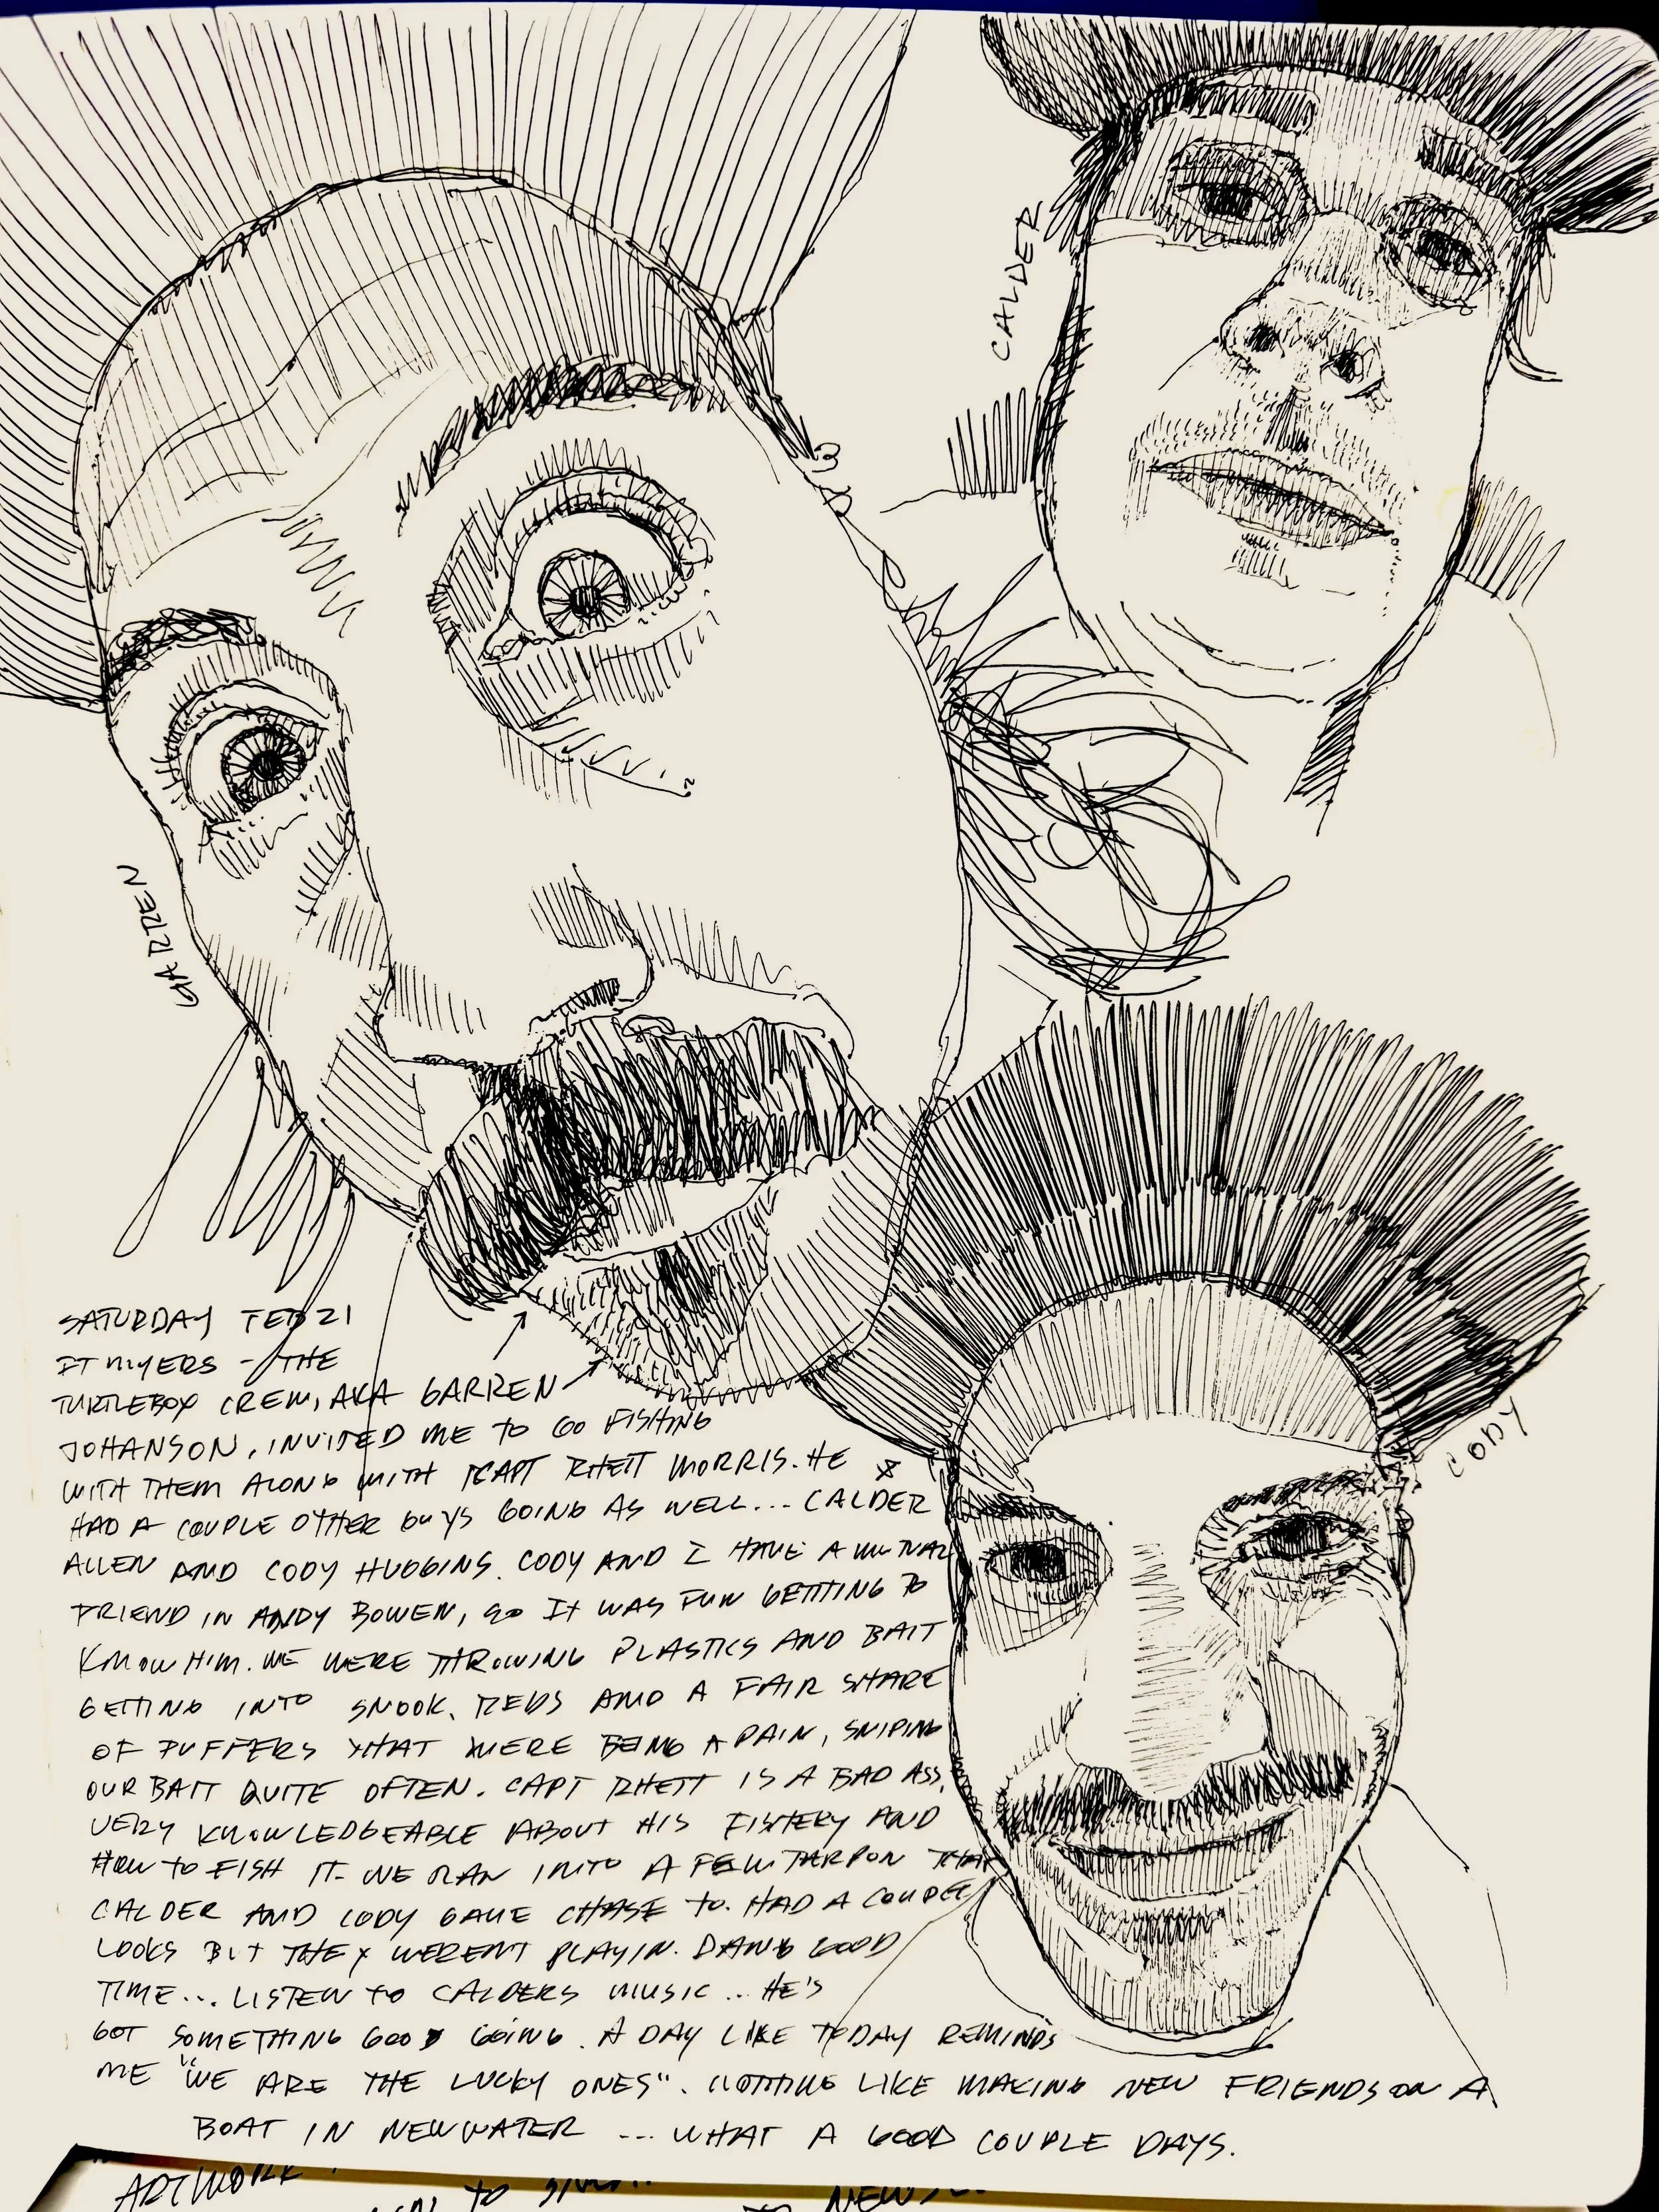 CALDER
GARREN
CODY
SATURDAY FEB 21
FT MYERS - THE
TURTLEBOX CREW, AKA GARREN
JOHANSON, INVITED ME TO GO FISHING
WITH THEM ALONG WITH CAPT RHETT MORRIS. HE
HAD A COUPLE OTHER GUYS GOING AS WELL... CALDER
ALLEN AND CODY HUGGINS. CODY AND I HAVE A MUTUAL
FRIEND IN ANDY BOWEN, SO IT WAS FUN GETTING TO
KNOW HIM. WE WERE THROWING PLASTICS AND BAIT
GETTING INTO SNOOK, REDS AND A FAIR SHARE
OF PUFFERS THAT WERE BEING A PAIN, SNIPING
OUR BAIT QUITE OFTEN. CAPT RHETT IS A BAD ASS,
VERY KNOWLEDGEABLE ABOUT HIS FISHERY AND
HOW TO FISH IT. WE RAN INTO A FEW TARPON THAT
CALDER AND CODY GAVE CHASE TO. HAD A COUPLE
LOOKS BUT THEY WERENT PLAYIN. DANG GOOD
TIME... LISTEN TO CALDERS MUSIC... HE'S
GOT SOMETHING GOOD GOING. A DAY LIKE TODAY REMINDS
ME "WE ARE THE LUCKY ONES". NOTHING LIKE MAKING NEW FRIENDS ON A
BOAT IN NEW WATER ... WHAT A GOOD COUPLE DAYS.
ARTWORK
TO